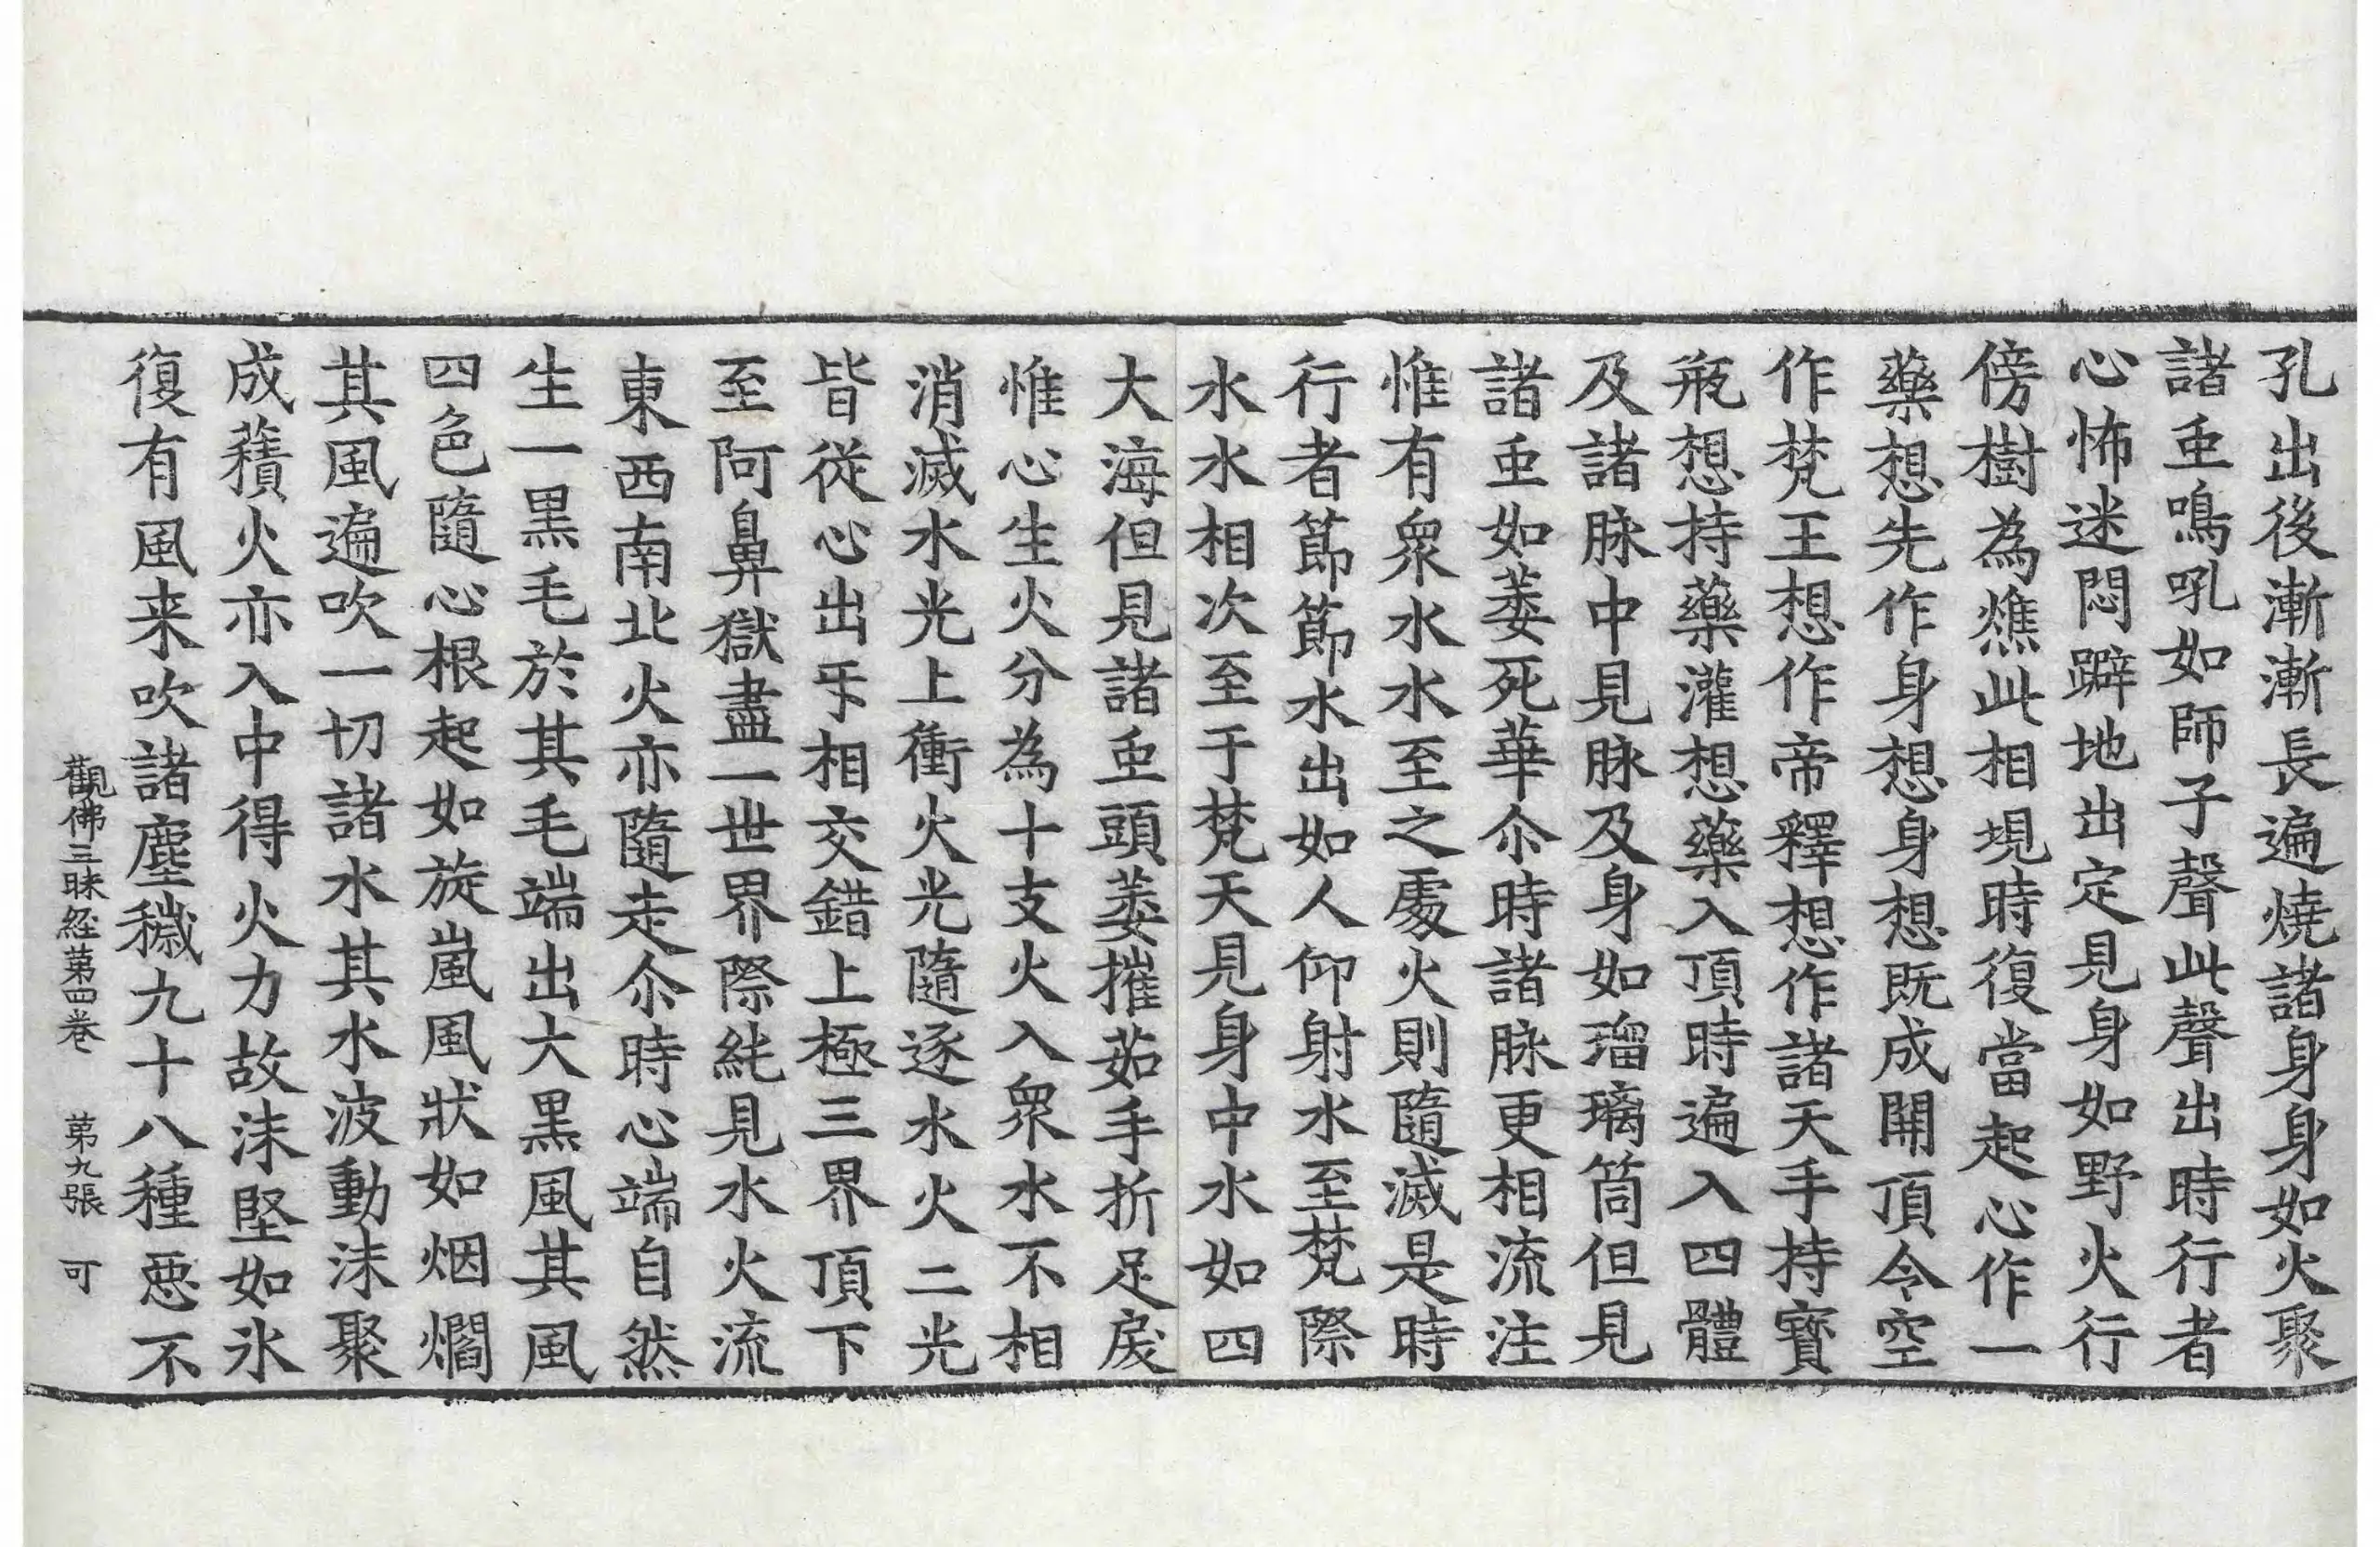 孔出後漸漸長遍燒諸身身如火聚
諸䖝鳴吼如師子聲此聲出時行者
心怖迷悶躃地出定見身如野火行
傍樹為燋此相現時復當起心作一
藥想先作身想身想既成開頂令空
作梵王想作帝釋想作諸天手持寶
瓶想持藥灌想藥入頂時遍入四體
及諸脉中見脉及身如瑠璃筒但見
諸䖝如萎死華尒時諸脉更相流注
惟有衆水水至之處火則隨滅是時
行者節節水出如人仰射水至梵際
水水相次至于梵天見身中水如四
大海但見諸䖝頭萎摧茹手折足戾
惟心生火分為十支火入衆水不相
消滅水光上衝火光隨逐水火二光
皆從心出㸦相交錯上極三界頂下
至阿鼻獄盡一世界際純見水火流
東西南北火亦隨走尒時心端自然
生一黒毛於其毛端出大黒風其風
四色隨心根起如旋嵐風狀如烟爓
其風遍吹一切諸水其水波動沫聚
成積火亦入中得火力故沫堅如氷
復有風来吹諸塵穢九十八種惡不
觀佛三昧経第四卷 第九張 可